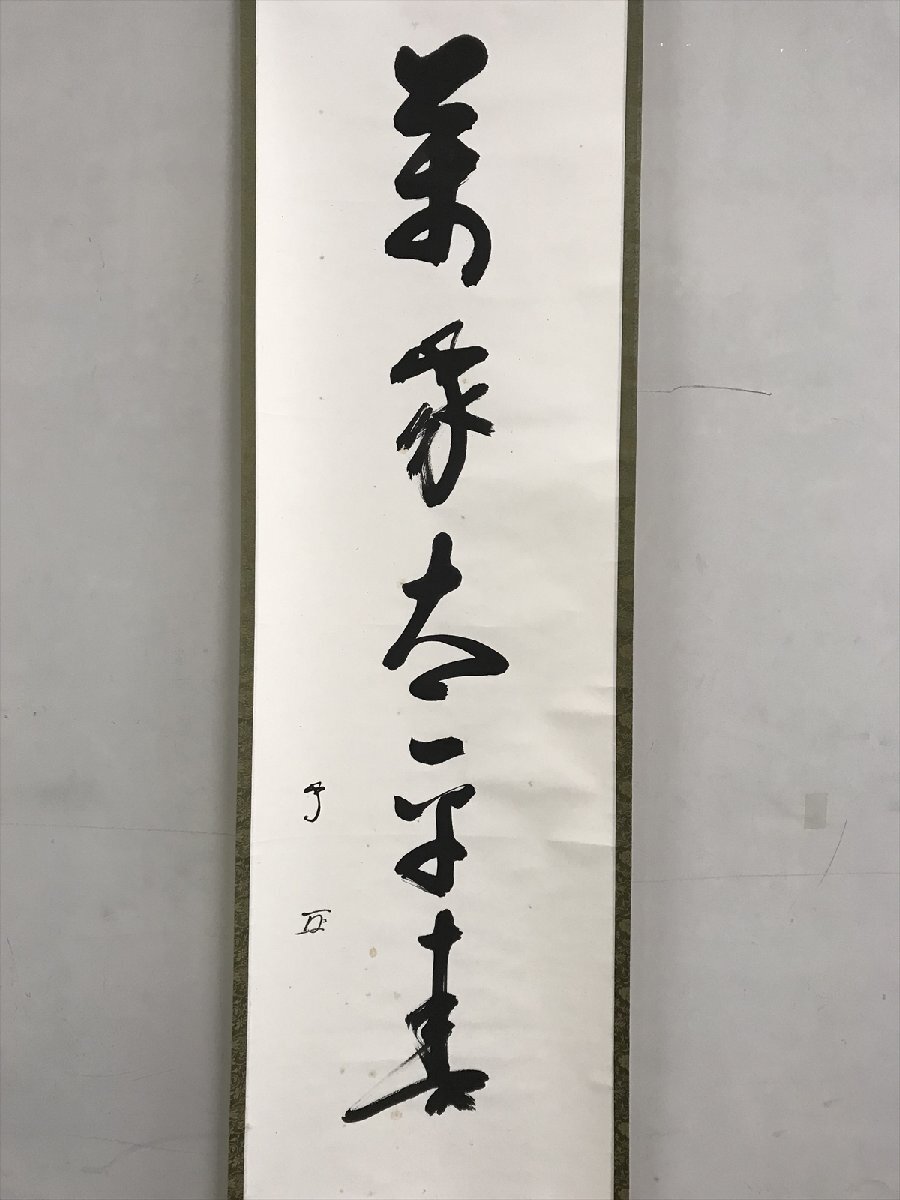 萬象太平春